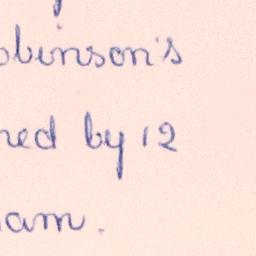 obinson's
ned by 12
am.